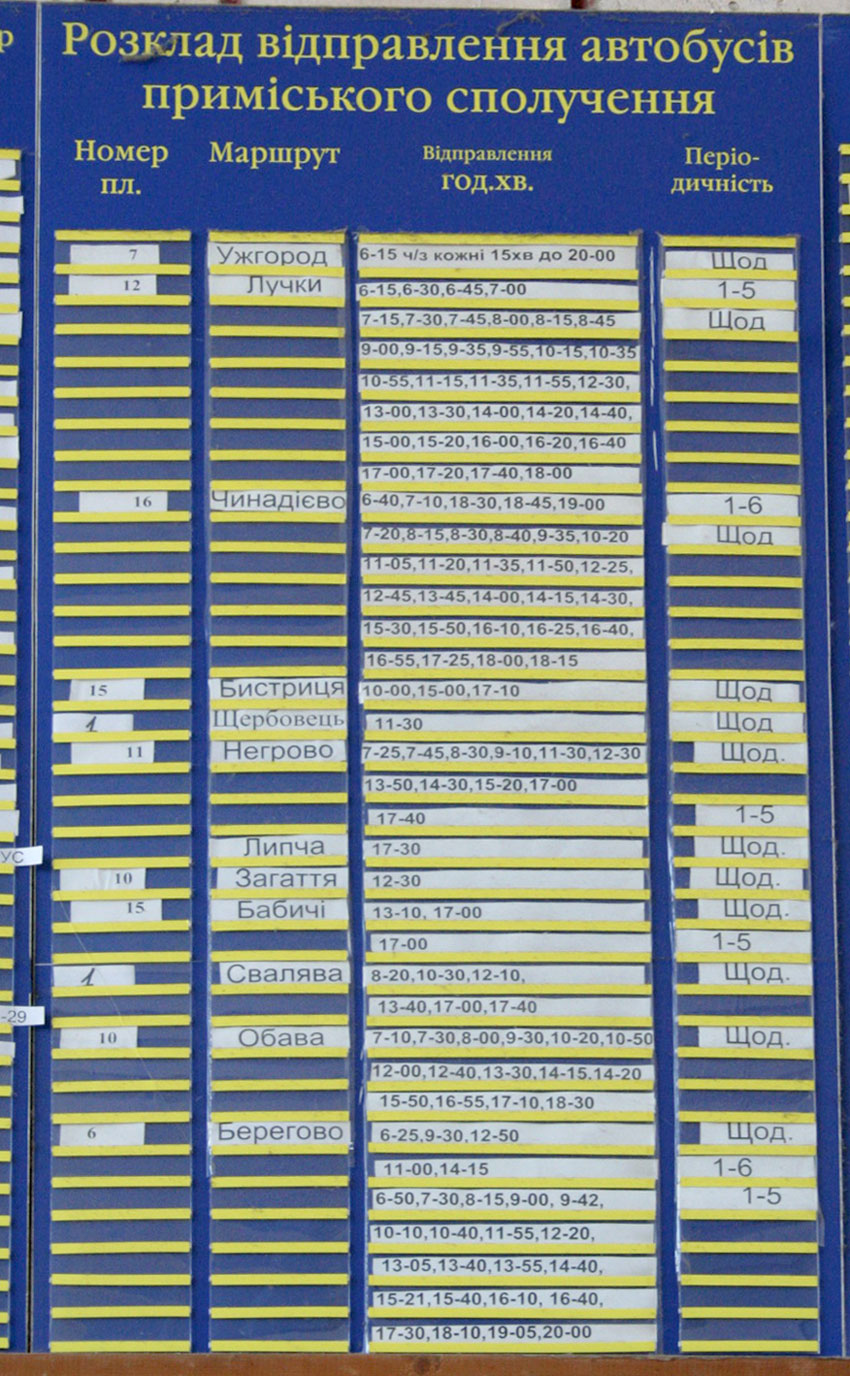 р
Розклад відправлення автобусів
приміського сполучення
Номер пл. Маршрут Відправлення год.хв. Періо-дичність
7 Ужгород 6-15 ч/з кожні 15хв до 20-00 Щод
12 Лучки 6-15,6-30,6-45,7-00 1-5
7-15,7-30,7-45,8-00,8-15,8-45 Щод
9-00,9-15,9-35,9-55,10-15,10-35
10-55,11-15,11-35,11-55,12-30,
13-00,13-30,14-00,14-20,14-40,
15-00,15-20,16-00,16-20,16-40
17-00,17-20,17-40,18-00
16 Чинадієво 6-40,7-10,18-30,18-45,19-00 1-6
7-20,8-15,8-30,8-40,9-35,10-20 Щод
11-05,11-20,11-35,11-50,12-25,
12-45,13-45,14-00,14-15,14-30,
15-30,15-50,16-10,16-25,16-40,
16-55,17-25,18-00,18-15
15 Бистриця 10-00,15-00,17-10 Щод
1 Щербовець 11-30 Щод
11 Негрово 7-25,7-45,8-30,9-10,11-30,12-30 Щод.
13-50,14-30,15-20,17-00
17-40 1-5
УС
Липча 17-30 Щод.
10 Загаття 12-30 Щод.
15 Бабичі 13-10, 17-00 Щод.
17-00 1-5
1 Свалява 8-20,10-30,12-10, Щод.
13-40,17-00,17-40
-29
10 Обава 7-10,7-30,8-00,9-30,10-20,10-50 Щод.
12-00,12-40,13-30,14-15.14-20
15-50,16-55,17-10,18-30
6 Берегово 6-25,9-30,12-50 Щод.
11-00,14-15 1-6
6-50,7-30,8-15,9-00, 9-42, 1-5
10-10,10-40,11-55,12-20,
13-05,13-40,13-55,14-40,
15-21,15-40,16-10, 16-40,
17-30,18-10,19-05,20-00